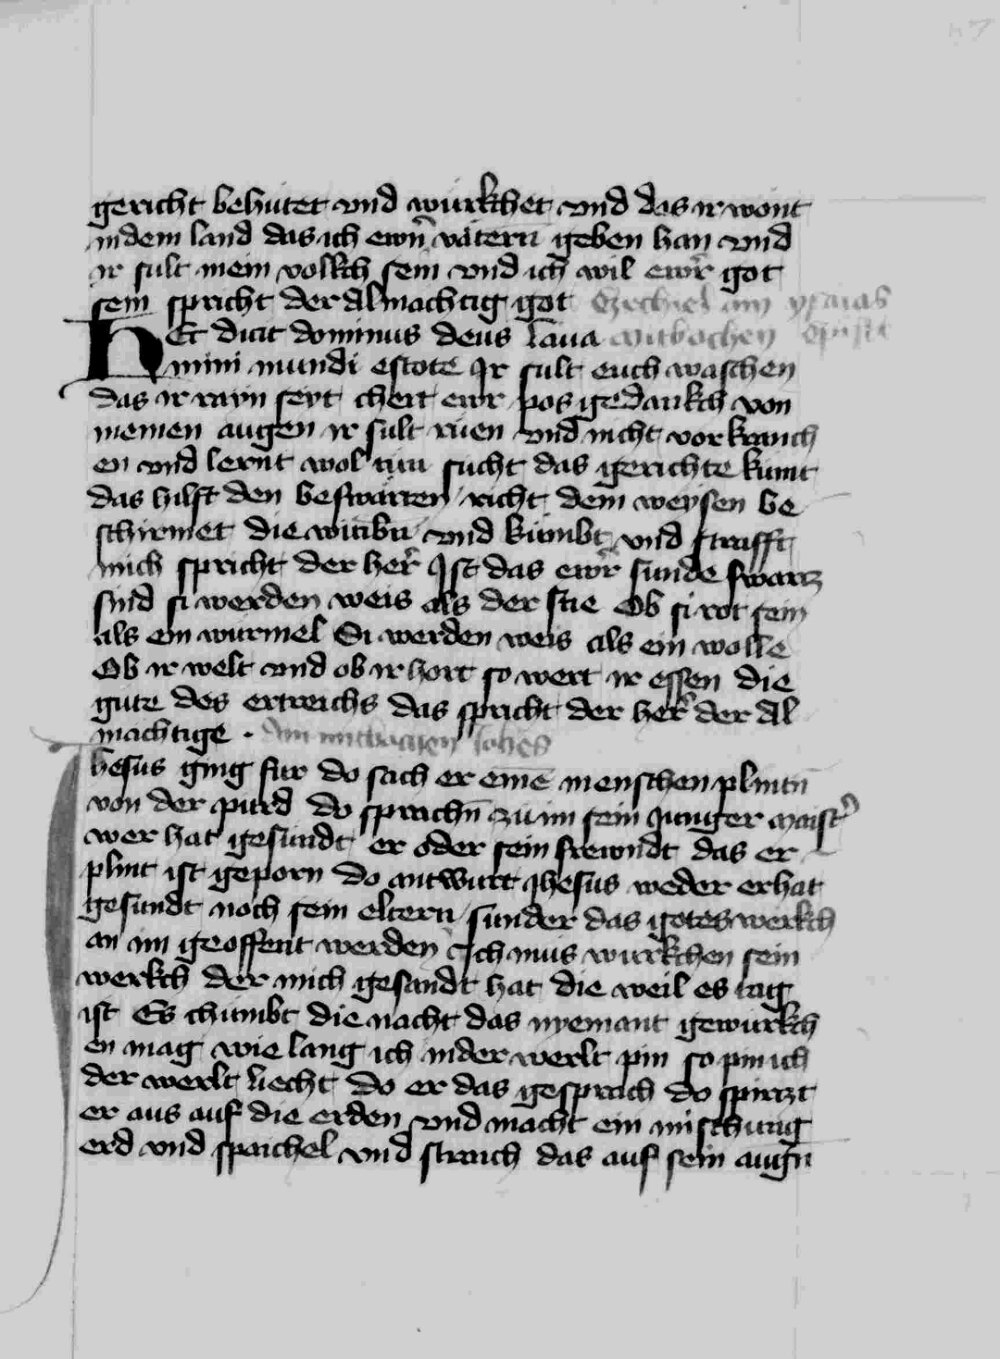 gericht behutet vnd wurkchet vnd das ir wont
in dem land das ich ewrn vatern geben han vnd
ir sult mein volkch sein vnd ich wil ewr got
sein spricht der Almachtig got Ezechiel ysaias
HEc dicit dominus deus Laua mitbochen epistl
mini mundi estote Ir sult euch waschen
das ir rayn seyt chert ewr pos gedankch von
meinen augen ir sult ruen vnd nicht vorkranch
en vnd lernt wol tun sucht das gerichte kumt
das hilft den beswarten richt dem weysen be
schirmet die witibn vnd kumbt vnd strafft
mich spricht der her Ist das ewr sunde swarz
sind si werden weis als der sne Ob si rot sein
als ein wurmel Si werden weis als ein wolle
Ob ir welt vnd ob ir hort so wert ir essen die
gute des ertreichs das spricht der her der Al
machtige . Am mitbochen Iohes
Ihesus ging fur do sach er eine menschen plintn
von der purd do sprachn zu im sein Iunger maistr
wer hat gesundt er oder sein frewndt das er
plint ist geporn do antwurt Ihesus weder er hat
gesundt noch sein eltern sunder das gotes werkch
an im geoffent werden Ich mus wurkchen sein
werkch der mich gesandt hat die weil es tag
ist Es chumbt die nacht das nyemant gewurkch
en mag wie lang ich in der werlt pin so pin ich
der werlt liecht do er das gesprach do spirtzt
er aus auf die erden vnd macht ein mischung
erd vnd spaichel vnd straich das auf sein augn